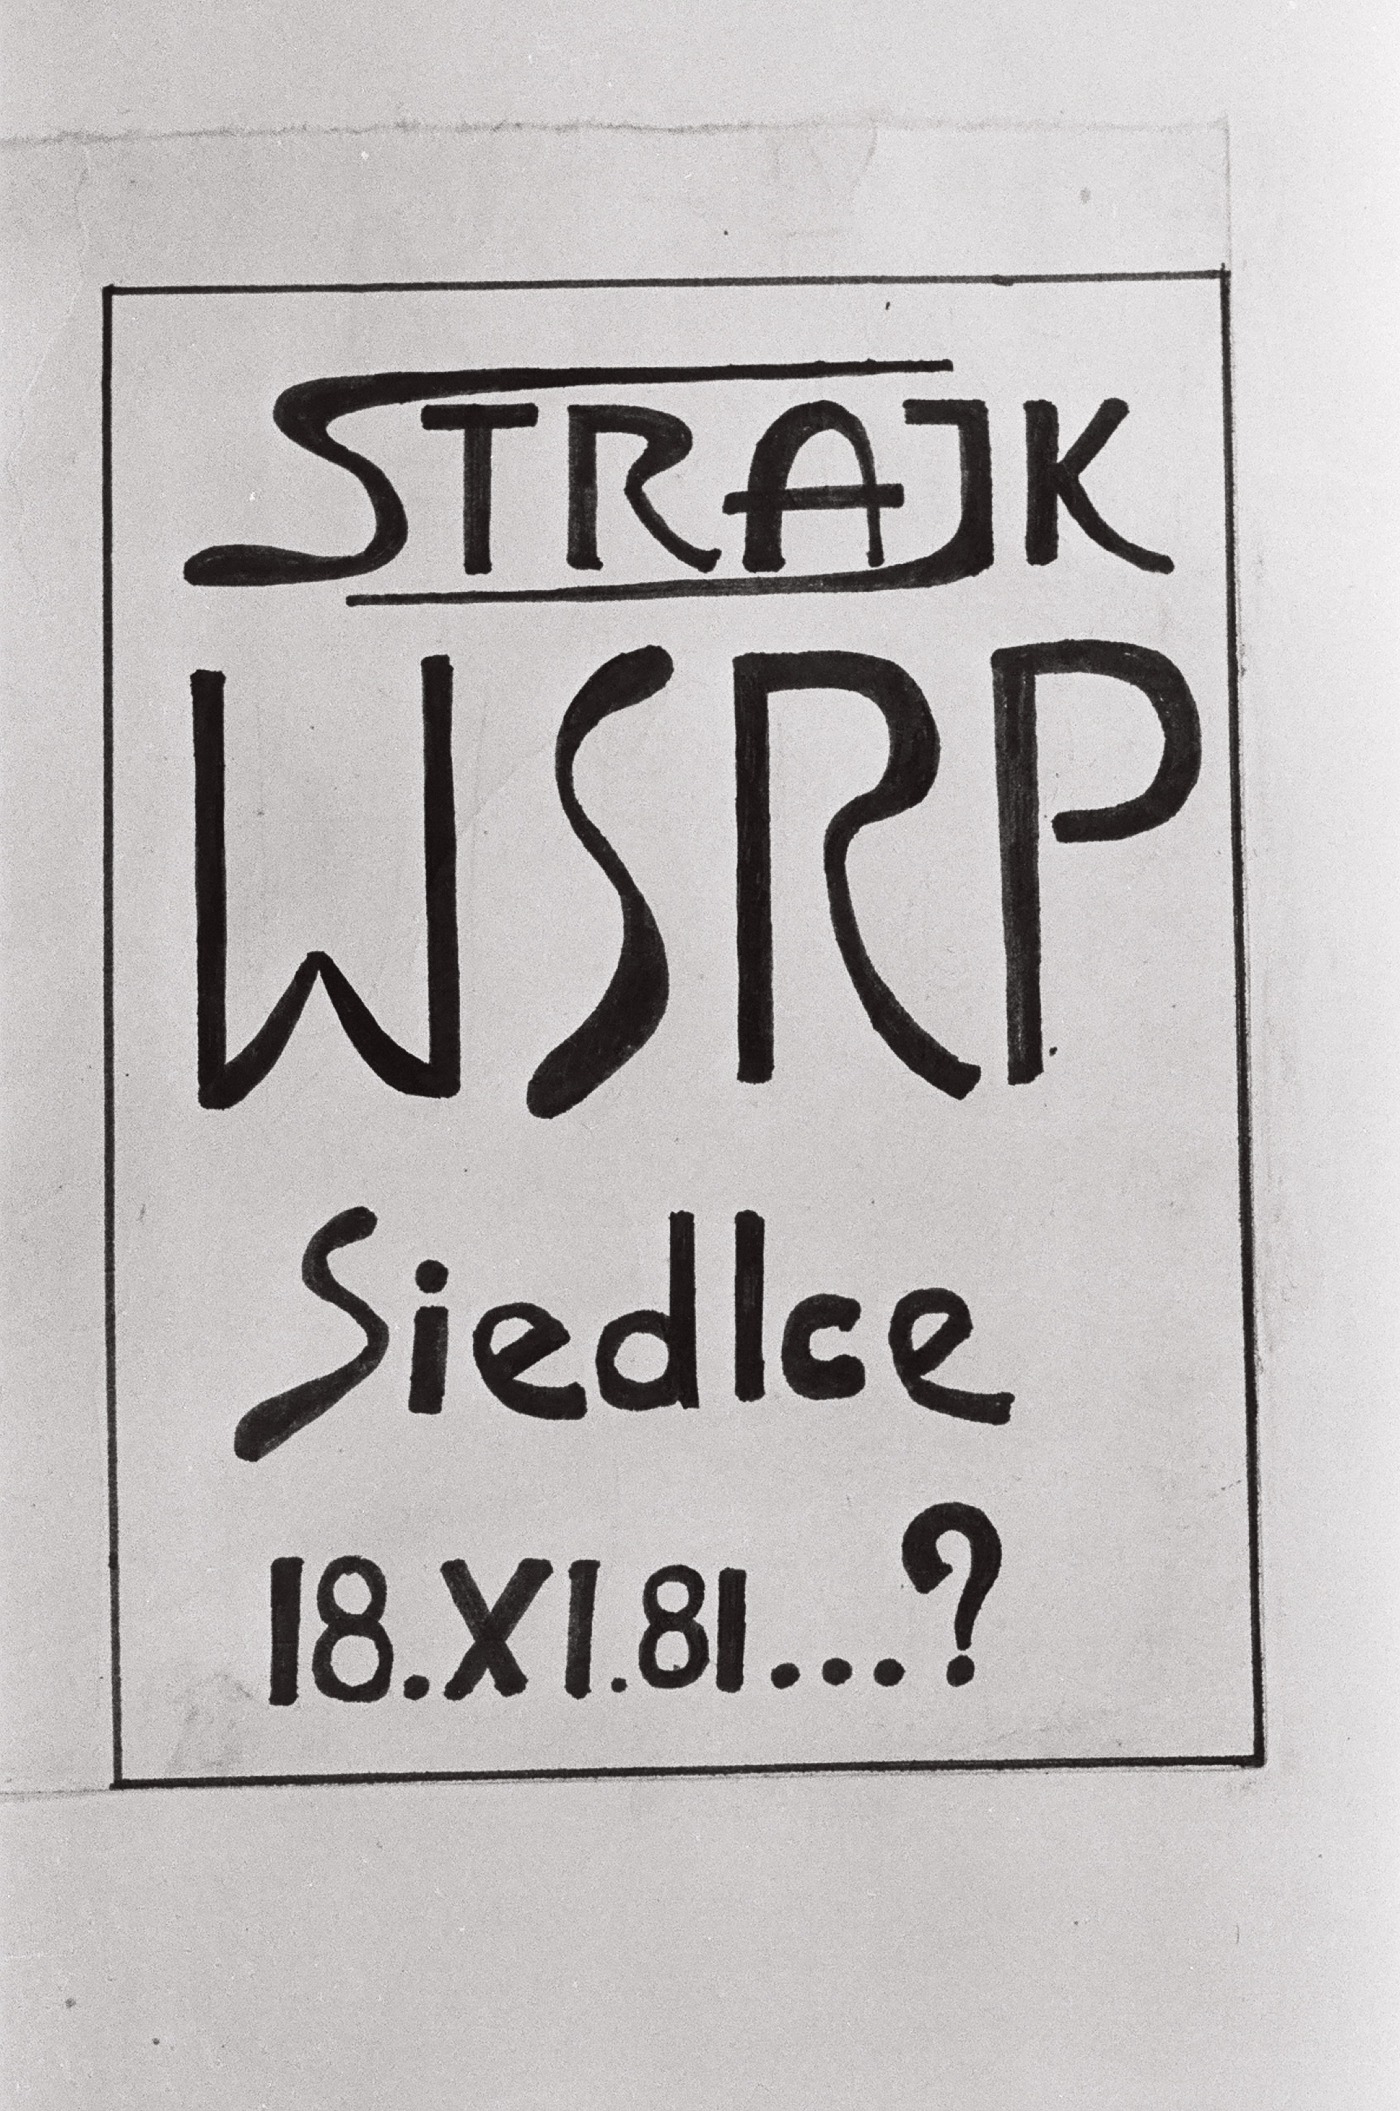 STRAJK
WSRP
Siedlce
18.XI.81...?